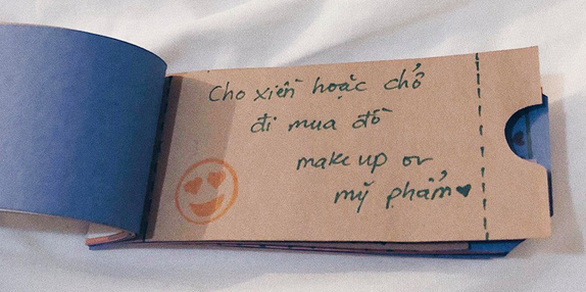 Cho xiền hoặc chở
đi mua đồ
make up or
mỹ phẩm